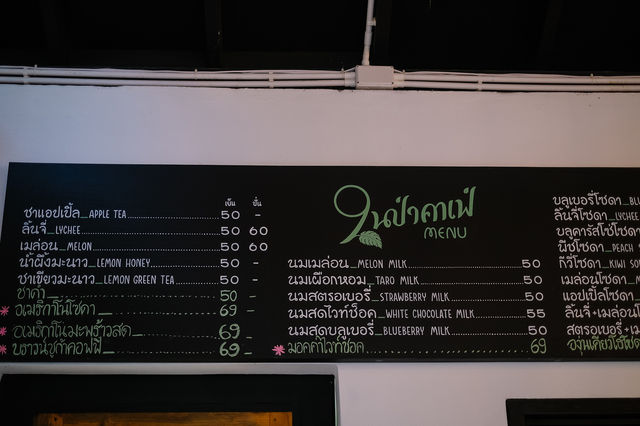 เย็น ปั่น
ชาแอปเปิ้ล_APPLE TEA 50 -
ลิ้นจี่_LYCHEE 50 60
เมล่อน_MELON 50 60
น้ำผึ้งมะนาว_LEMON HONEY 50 -
ชาเขียวมะนาว_LEMON GREEN TEA 50 -
ชาดำ 50 -
อเมริกาโน่โซดา 69 -
อเมริกาโน่มะพร้าวสด 69 -
บราวน์ชูก้าคอฟฟี่ 69 -
ในป่าคาเฟ่
MENU
นมเมล่อน_MELON MILK 50
นมเผือกหอม_TARO MILK 50
นมสตรอเบอรี่_STRAWBERRY MILK 50
นมสดไวท์ช็อค_WHITE CHOCOLATE MILK 55
นมสดบลูเบอรี่_BLUEBERRY MILK 50
มอคค่าไวท์ช็อค 69
บลูเบอรี่โซดา_BLU
ลิ้นจี่โซดา_LYCHEE
บลูคารัสโซ่โซดา
พีชโซดา_PEACH
กีวี่โซดา_KIWI SO
เมล่อนโซดา_M
แอปเปิ้ลโซดา_
ลิ้นจี่+เมล่อน
สตรอเบอรี่+เม